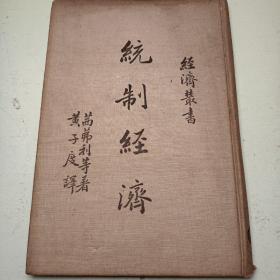 經濟叢書
統制經濟
茵弗利等著
黃子度譯